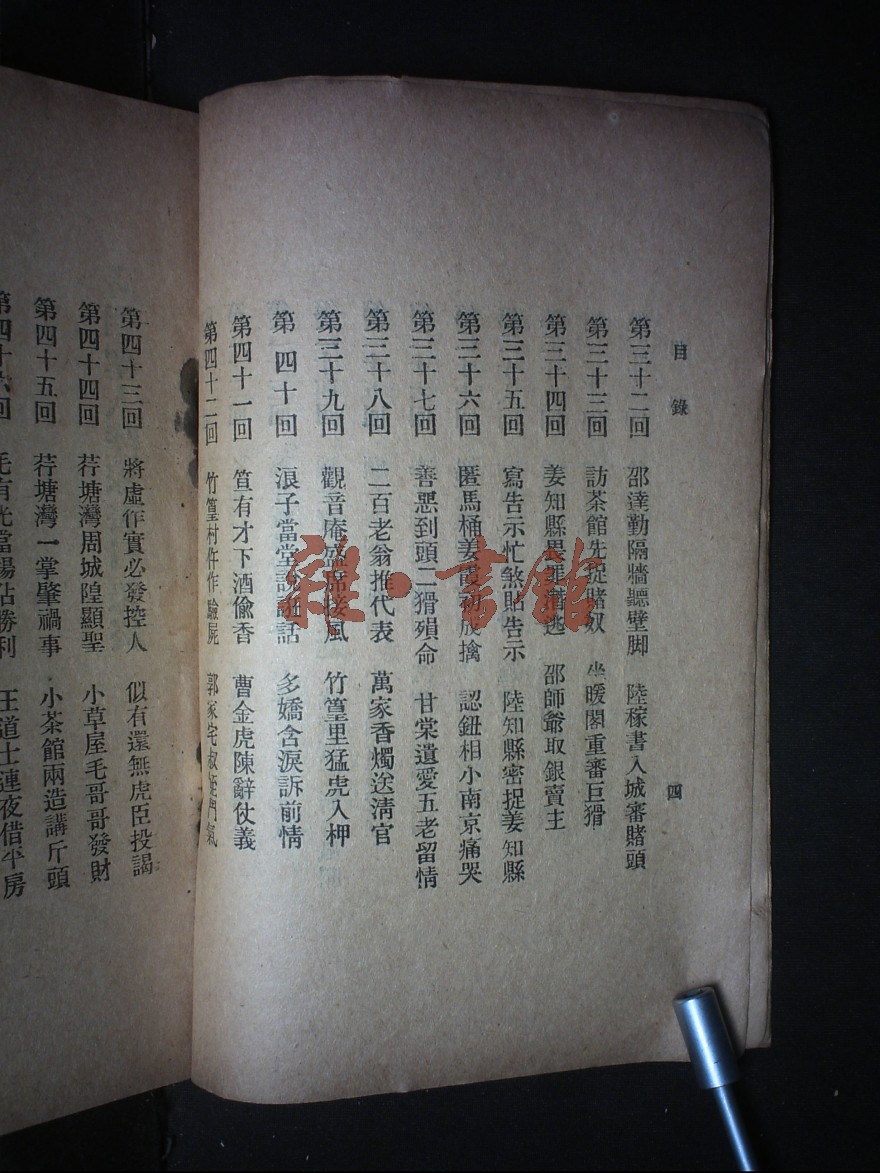 目錄 四
第三十二回 邵達勤隔牆聽壁脚 陸稼書入城審賭頭
第三十三回 訪茶館先捉賭奴 坐暖閣重審巨猾
第三十四回 姜知縣畏罪潛逃 邵師爺取銀賣主
第三十五回 寫告示忙煞貼告示 陸知縣密捉姜知縣
第三十六回 匿馬桶姜霞初成擒 認鈕相小南京痛哭
第三十七回 善惡到頭二猾殞命 甘棠遺愛五老留情
第三十八回 二百老翁推代表 萬家香燭送淸官
第三十九回 觀音庵盛席接風 竹篁里猛虎入柙
第四十回 浪子當堂說誑話 多嬌含淚訴前情
第四十一回 笪有才下酒偸香 曹金虎陳辭仗義
第四十二回 竹篁村仵作驗屍 郭家宅叔姪鬥氣
第四十三回 將虛作實必發控人 似有還無虎臣投謁
第四十四回 荇塘灣周城隍顯聖 小草屋毛哥哥發財
第四十五回 荇塘灣一掌肇禍事 小茶館兩造講斤頭
第四十六回 毛有光當場佔勝利 王道士連夜借平房
雜·書館